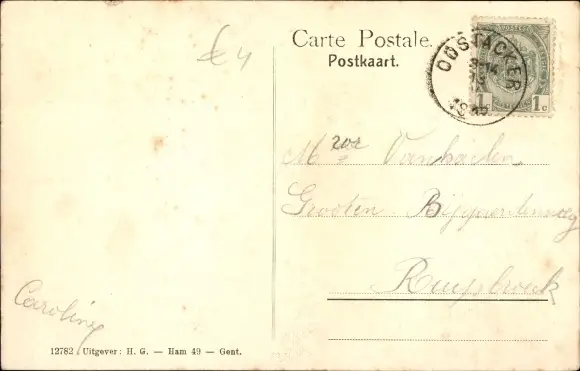 €4
Carte Postale.
Postkaart.
OOSTACKER
1c 1c
Mme Vanhaelen
Grooten
Ruysbroeck
Caroline
12782 Uitgever: H. G. — Ham 49 — Gent.